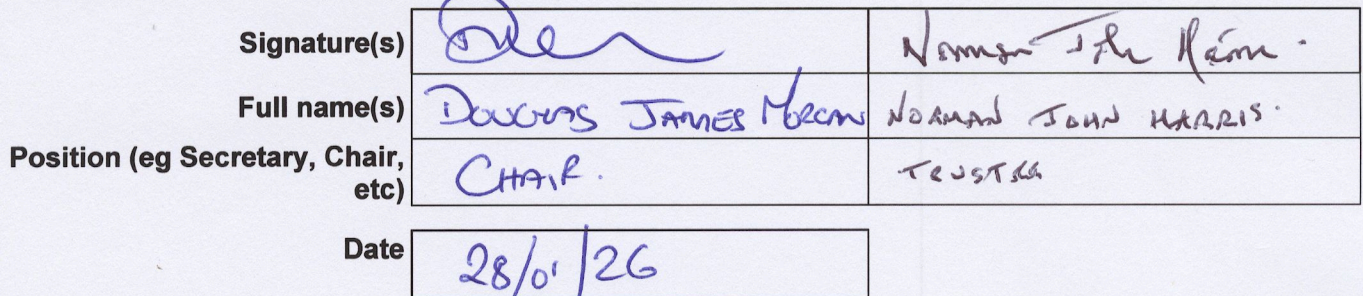 Signature(s) Norman John Harris.
Full name(s) DOUGLAS JAMES MORGAN NORMAN JOHN HARRIS.
Position (eg Secretary, Chair, etc) CHAIR. TRUSTEE
Date 28/01/26